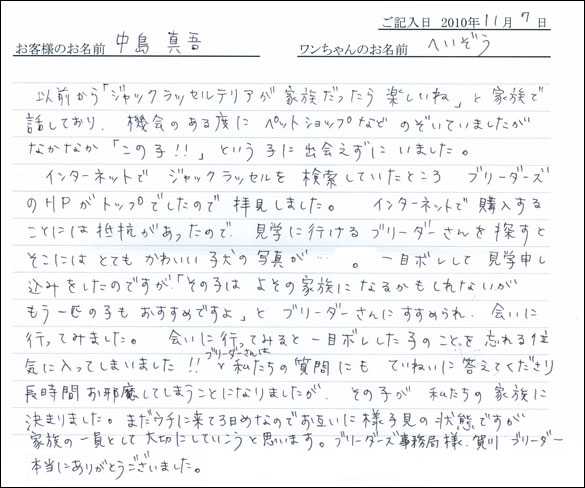 ご記入日 2010年11月7日
お客様のお名前 中島 真吾 ワンちゃんのお名前 へいぞう
以前から「ジャックラッセルテリアが家族だったら楽しいね」と家族で
話しており、機会のある度にペットショップなどのぞいていましたが
なかなか「この子!!」という子に出会えずにいました。
インターネットでジャックラッセルを検索していたところ ブリーダーズ
のHPがトップでしたので拝見しました。 インターネットで購入する
ことには抵抗があったので、見学に行けるブリーダーさんを探すと
そこにはとてもかわいい子犬の写真が…。一目ボレして見学申し
込みをしたのですが「その子はよその家族になるかもしれないが
もう一匹の子もおすすめですよ」とブリーダーさんにすすめられ、会いに
行ってみました。 会いに行ってみると一目ボレした子のことを忘れる位
気に入ってしまいました!! ブリーダーさんは私たちの質問にもていねいに答えてくださり
長時間お邪魔してしまうことになりましたが、その子が私たちの家族に
決まりました。まだウチに来て3日めなのでお互いに様子見の状態ですが
家族の一員として大切にしていこうと思います。ブリーダーズ事務局様、賀川ブリーダー
本当にありがとうございました。